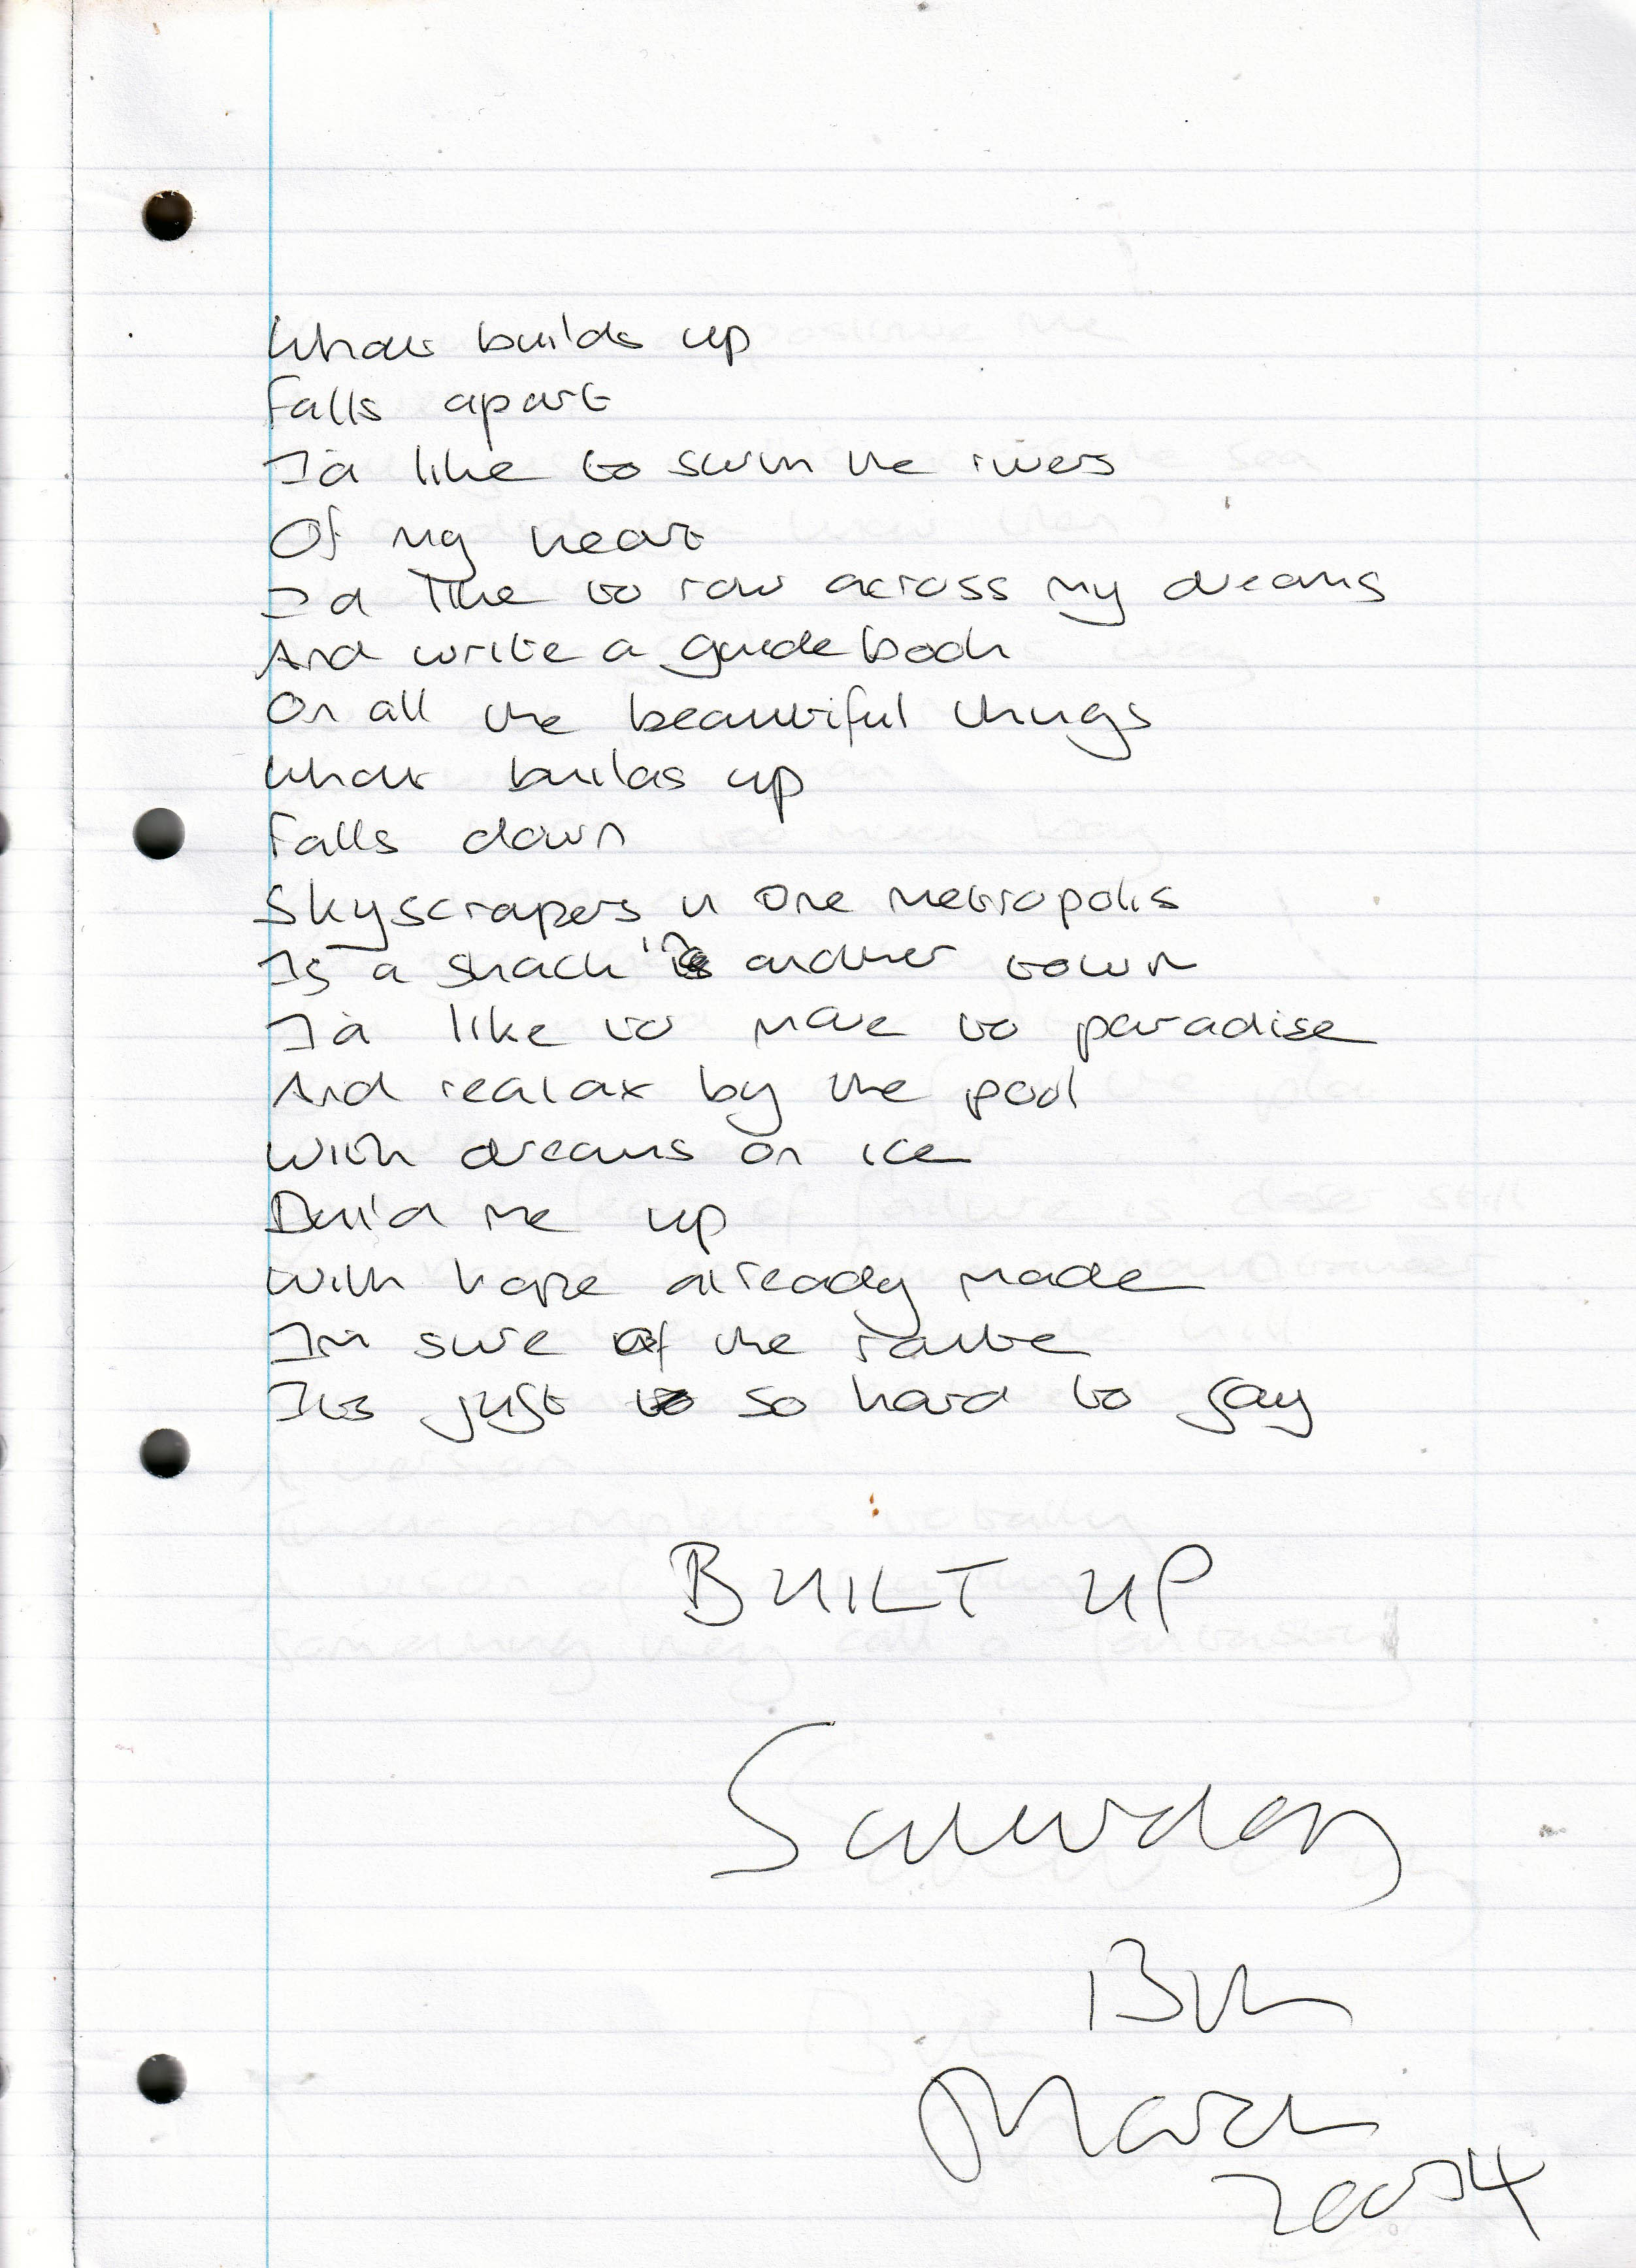 What builds up
Falls apart
I'd like to swim the rivers
Of my heart
I'd like to row across my dreams
And write a guide book
On all the beautiful things
What builds up
Falls down
Skyscrapers in one metropolis
Is a shack in another town
I'd like to move to paradise
And realax by the pool
With dreams on ice
Build me up
With hope already made
I'm sure of the route
Its just so hard to say
BUILT UP
Saturday
13th
March
2004